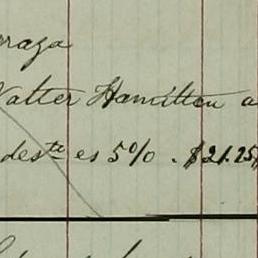 Walter Hamilton a
deste es 5% . $21.25